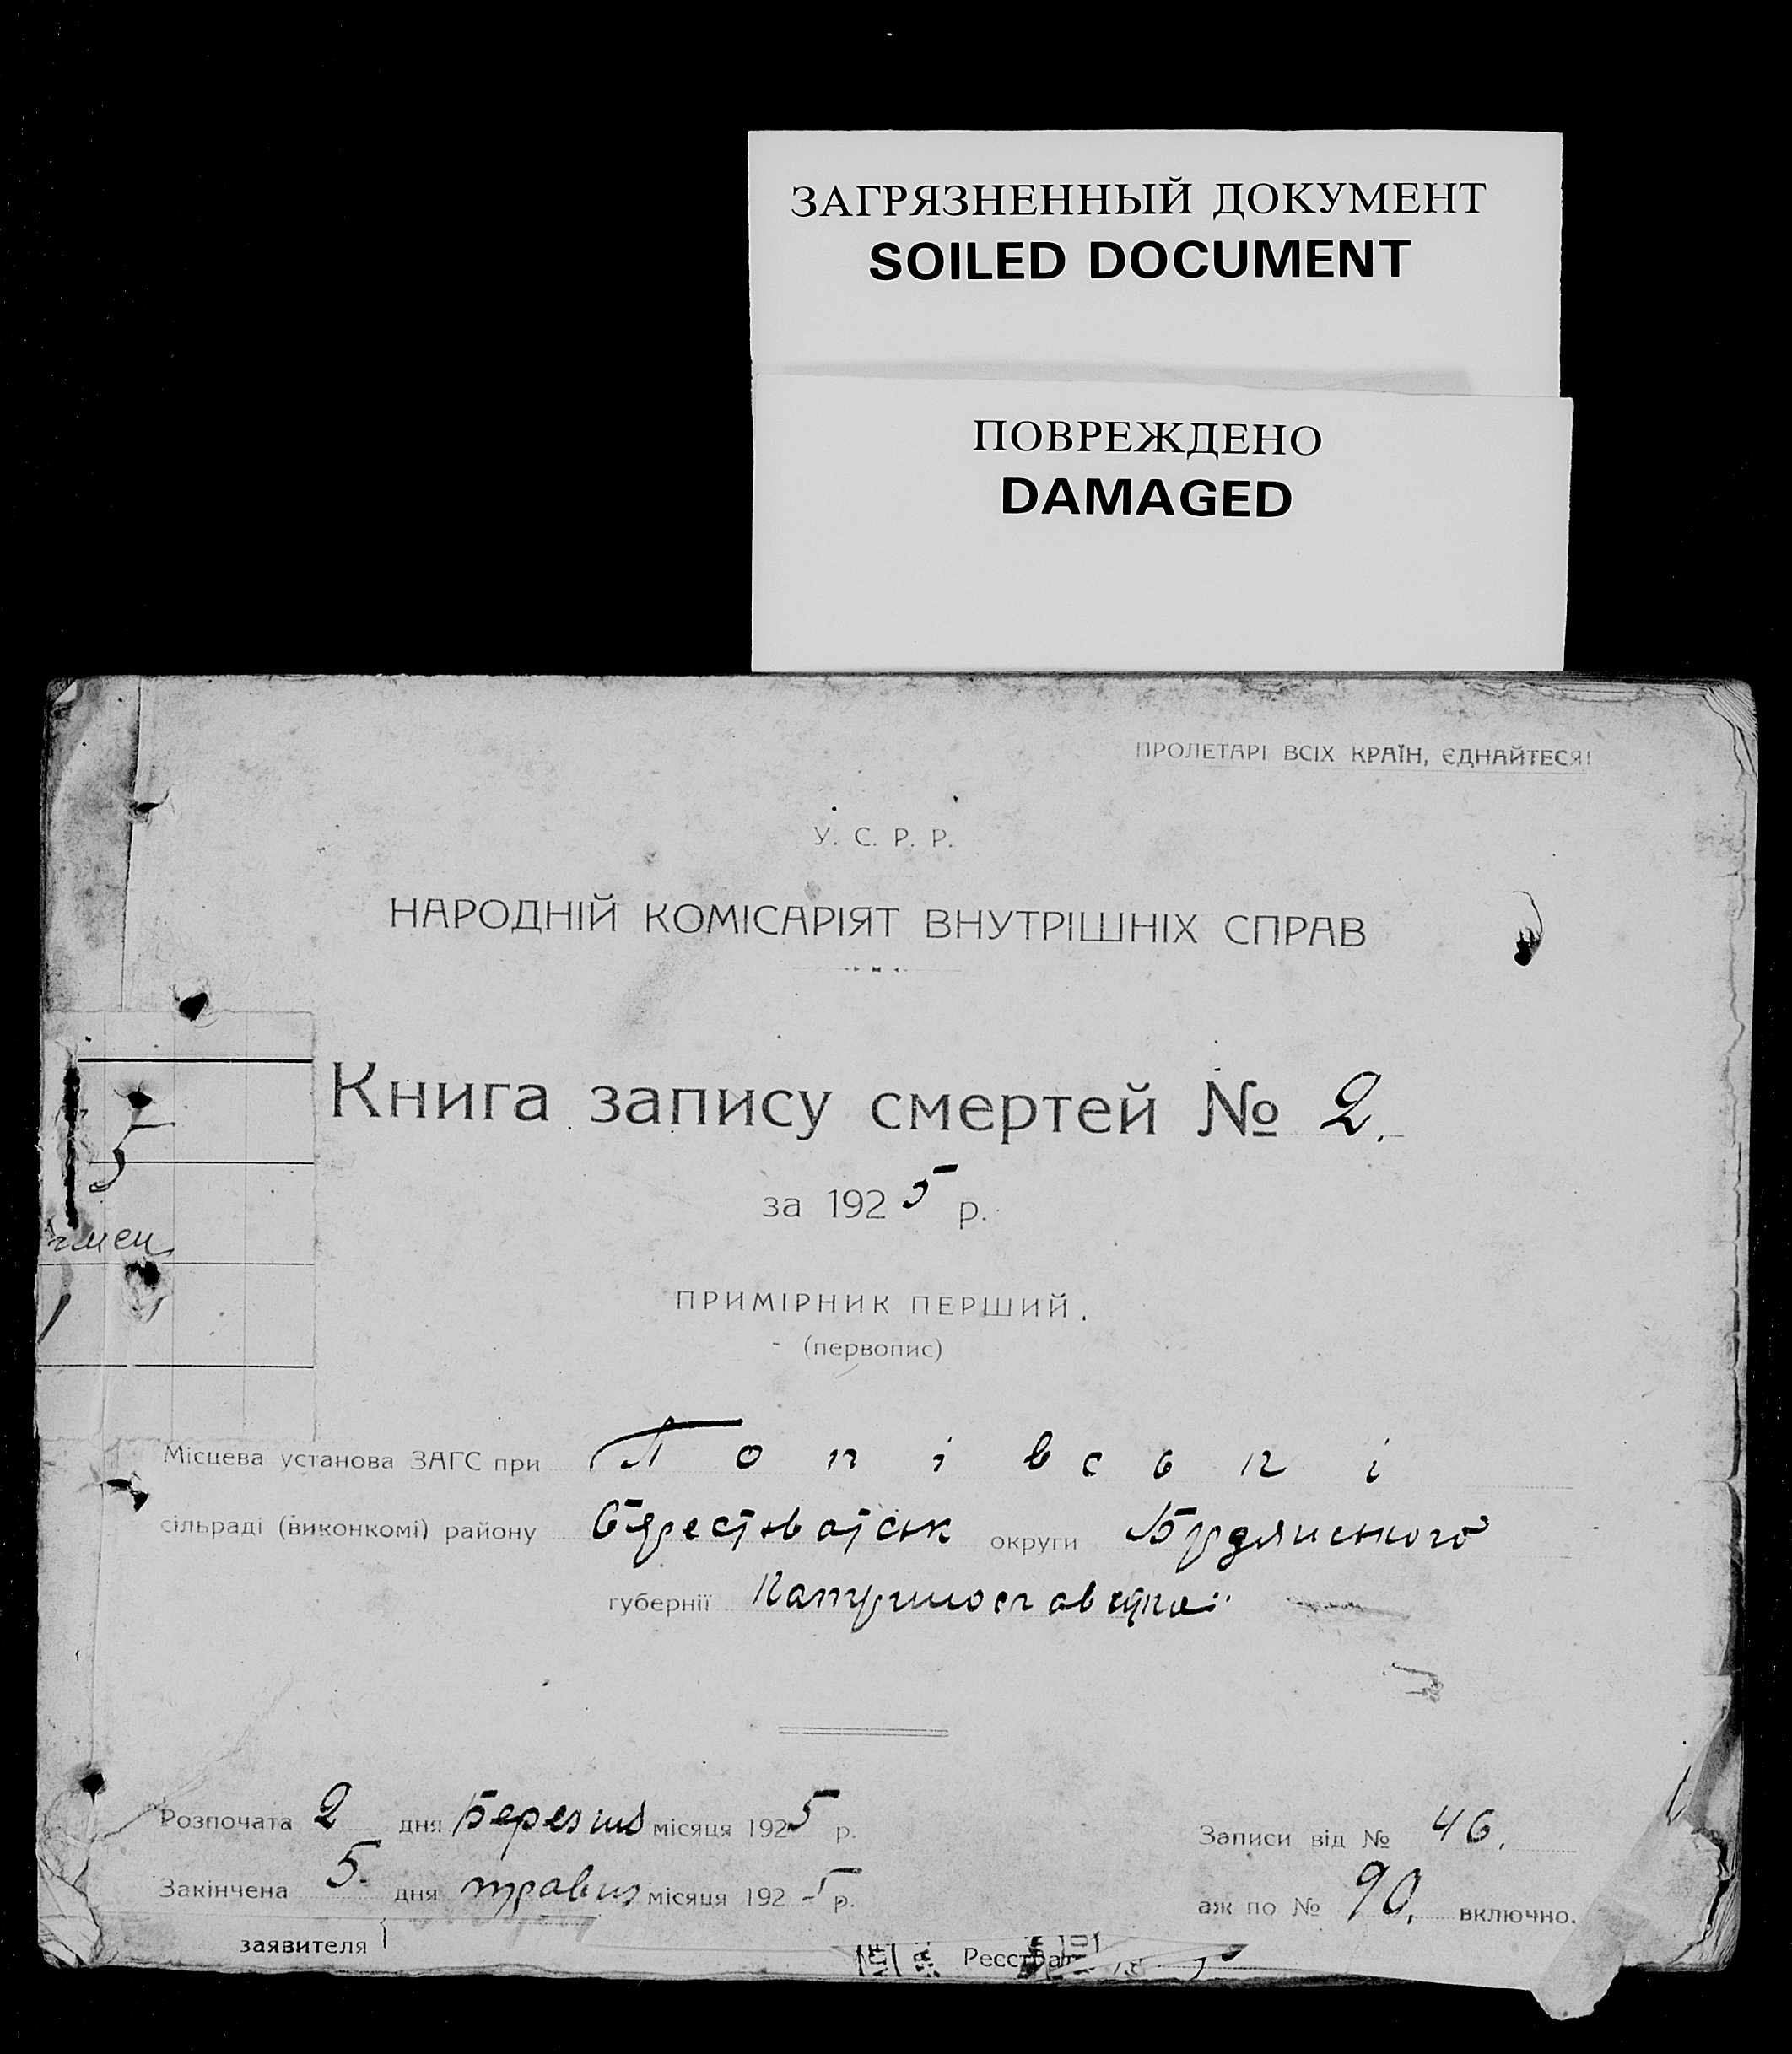 ЗАГРЯЗНЕННЫЙ ДОКУМЕНТ
SOILED DOCUMENT
ПОВРЕЖДЕНО
DAMAGED
ПРОЛЕТАРІ ВСІХ КРАЇН, ЄДНАЙТЕСЯ!
У. С. Р. Р.
НАРОДНІЙ КОМІСАРІЯТ ВНУТРІШНІХ СПРАВ
Книга запису смертей № 2.
за 1925 р.
ПРИМІРНИК ПЕРШИЙ.
(первопис)
Місцева установа ЗАГС при Попівській
сільраді (виконкомі) району округи
губернії
Розпочата 2 дня Березня місяця 1925 р.
Закінчена 5 дня травня місяця 1925 р.
Записи від № 46.
аж по № 90. включно.
заявителя
Реєстра